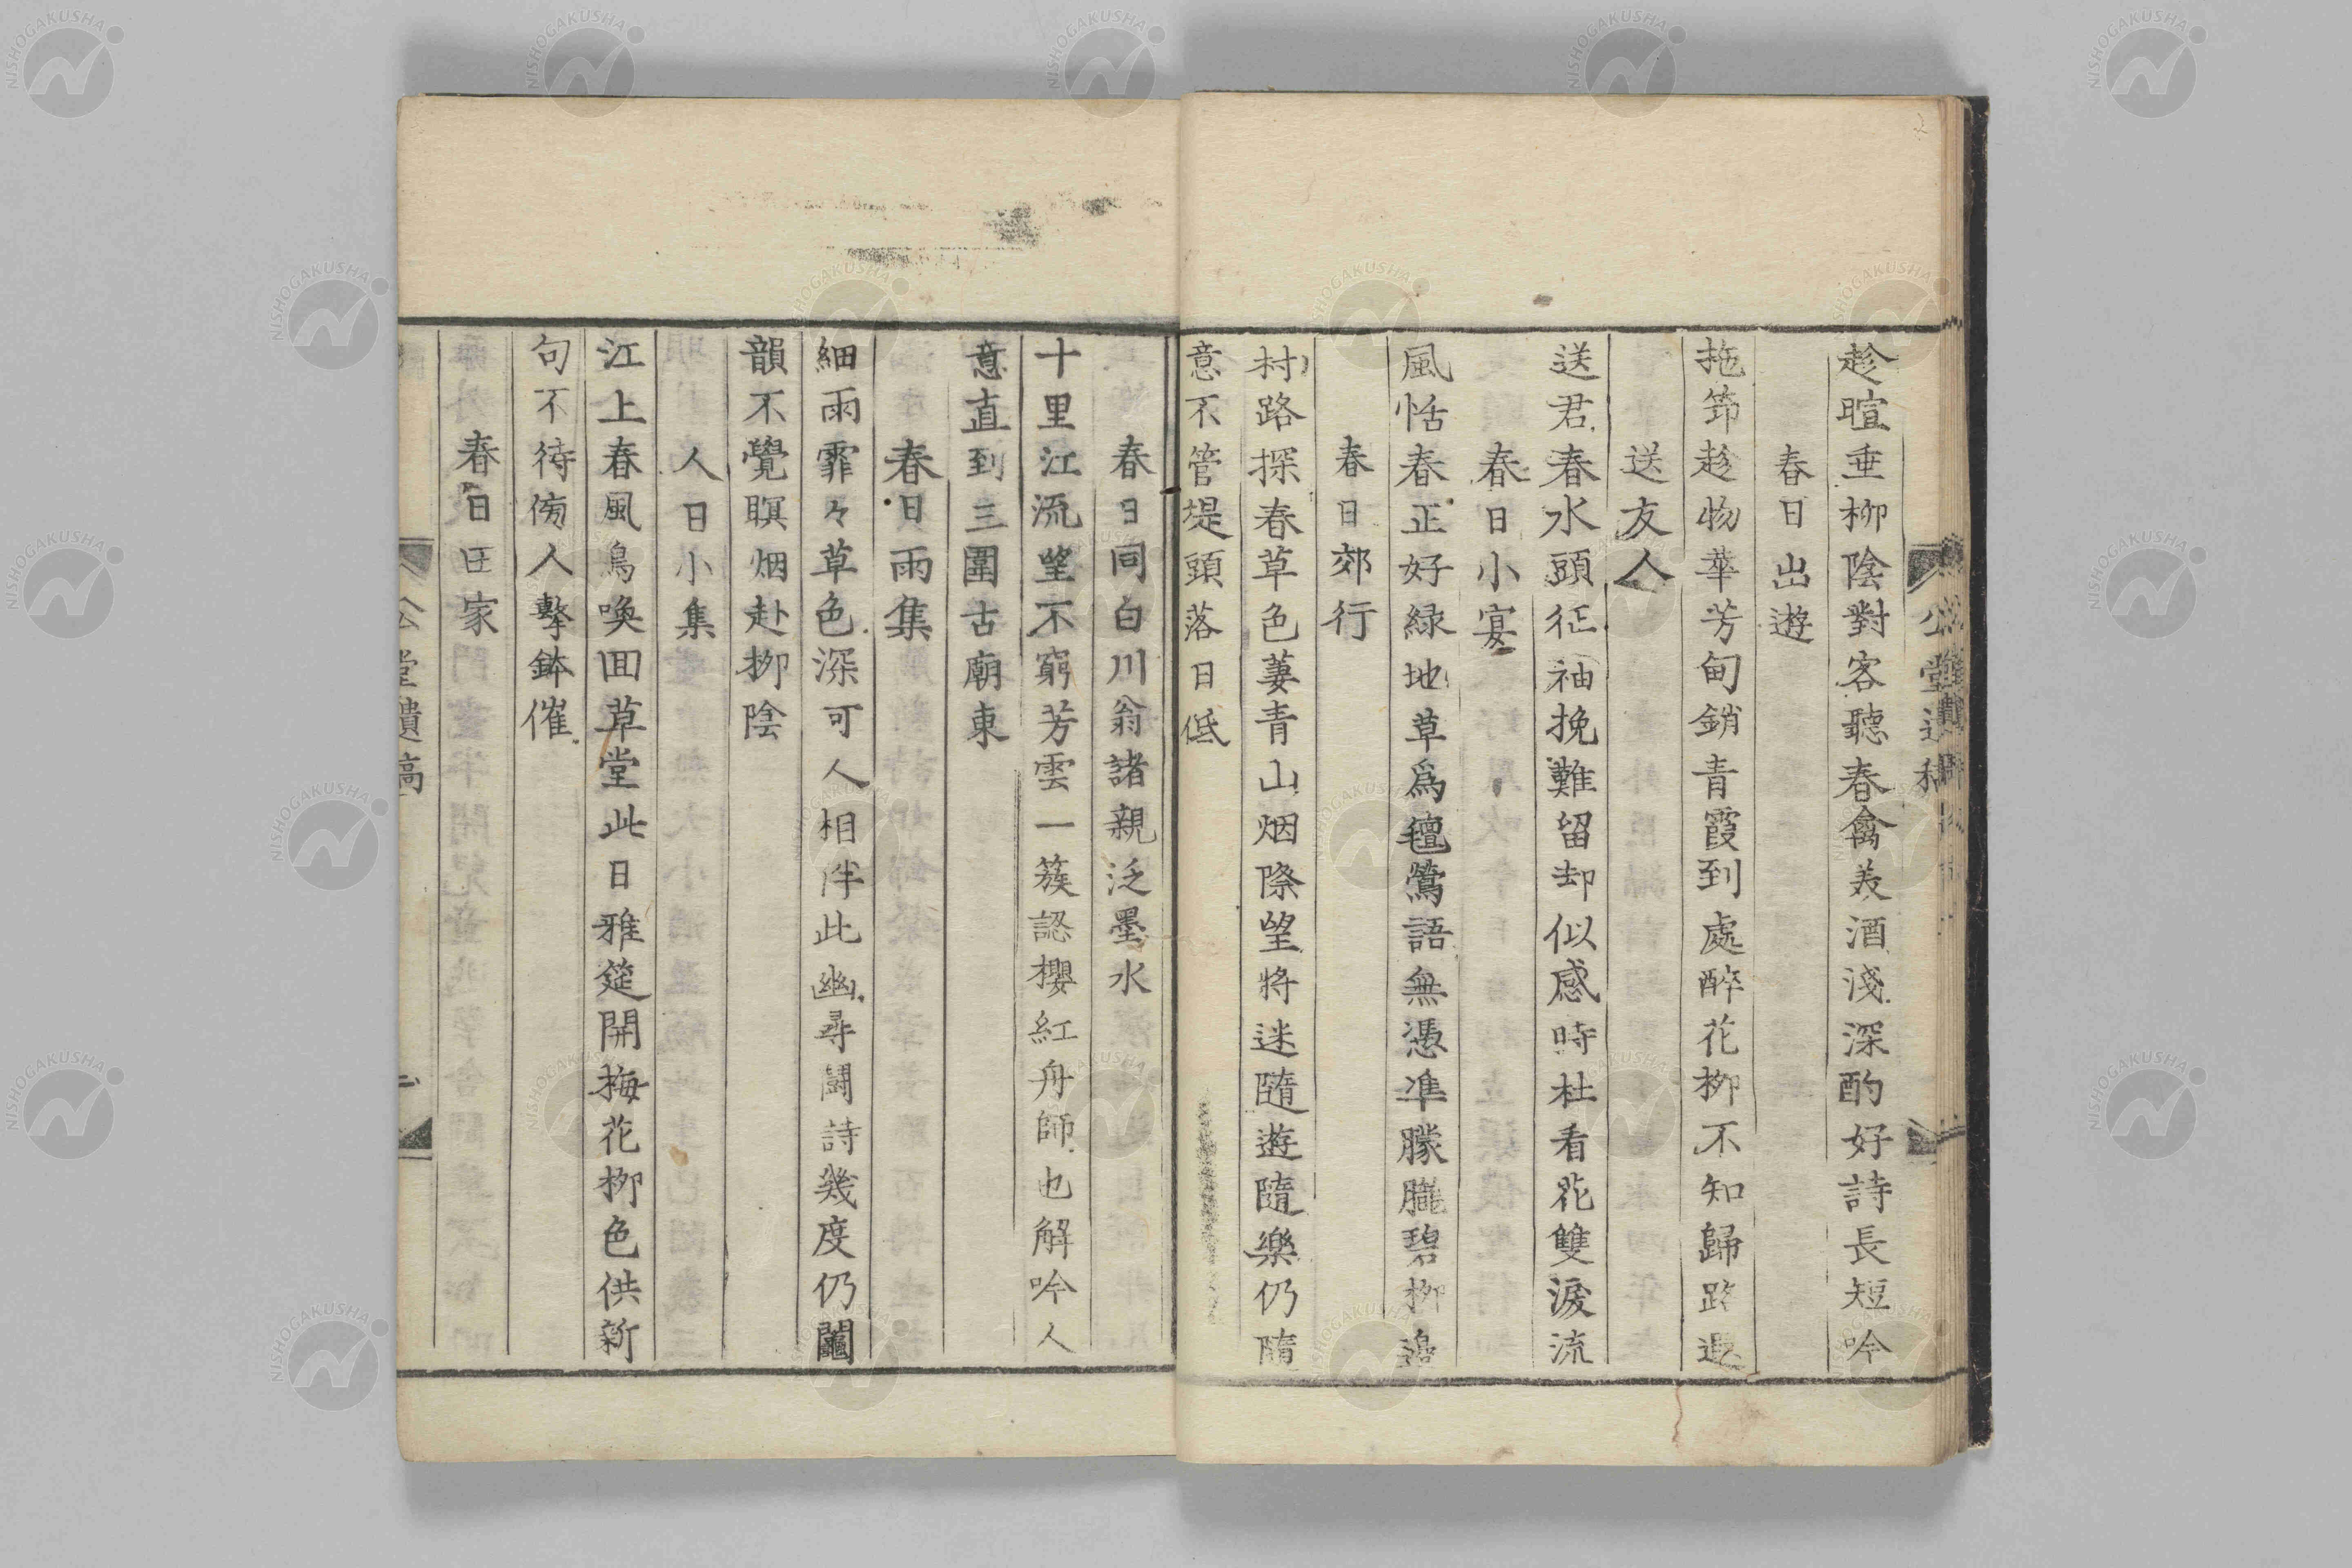 趁暄垂柳陰對客聽春禽美酒淺深酌好詩長短吟
春日出遊
拖筇趁物華芳甸銷青霞到處醉花柳不知歸路遐
送友人
送君春水頭征袖挽難留却似感時杜看花雙淚流
春日小宴
風恬春正好綠地草爲氊鶯語無憑準朦朧碧柳邊
春日郊行
村路探春草色萋青山烟際望將迷隨遊隨樂仍隨
意不管堤頭落日低
春日同白川翁諸親泛墨水
十里江流望不窮芳雲一簇認櫻紅舟師也解吟人
意直到三圍古廟東
春日雨集
細雨霏々草色深可人相伴此幽尋鬪詩幾度仍鬮
韻不覺暝烟赴柳陰
人日小集
江上春風鳥喚回草堂此日雅筵開梅花柳色供新
句不待傍人擊鉢催
春日田家
公堂遺稿
NISHOGAKUSHA